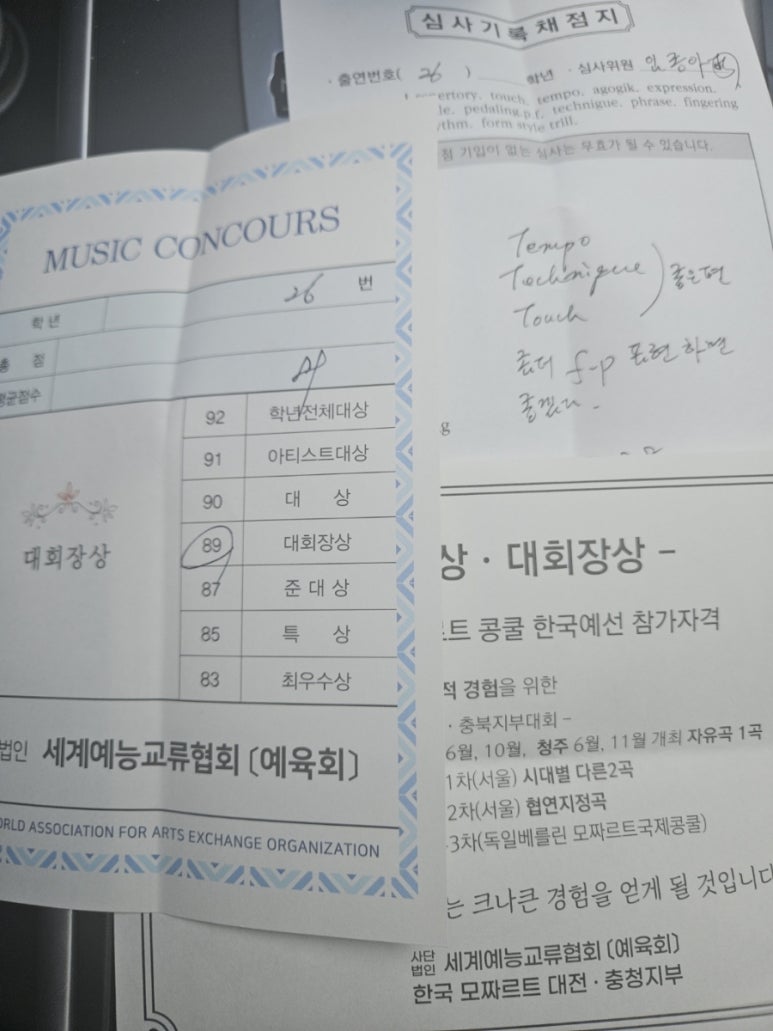 심사기록채점지
· 출연번호( 26 ) 학년 · 심사위원
touch, tempo, agogik, expression,
pedaling.p.f, technigue, phrase, fingering
form style trill.
기입이 없는 심사는 무효가 될 수 있습니다.
Tempo
Technique
Touch
좋은편
좀더 f-p 표현하면
좋겠다.
MUSIC CONCOURS
26 번
학 년
총 점
평균점수
92 학년전체대상
91 아티스트대상
90 대 상
89 대회장상
87 준 대 상
85 특 상
83 최우수상
대회장상
법인 세계예능교류협회 (예육회)
WORLD ASSOCIATION FOR ARTS EXCHANGE ORGANIZATION
상 · 대회장상 -
콩쿨 한국예선 참가자격
경험을 위한
· 충북지부대회 -
6월, 10월, 청주 6월, 11월 개최 자유곡 1곡
1차(서울) 시대별 다른2곡
2차(서울) 협연지정곡
3차(독일베를린 모짜르트국제콩쿨)
는 크나큰 경험을 얻게 될 것입니다
사단법인 세계예능교류협회 (예육회)
한국 모짜르트 대전 · 충청지부